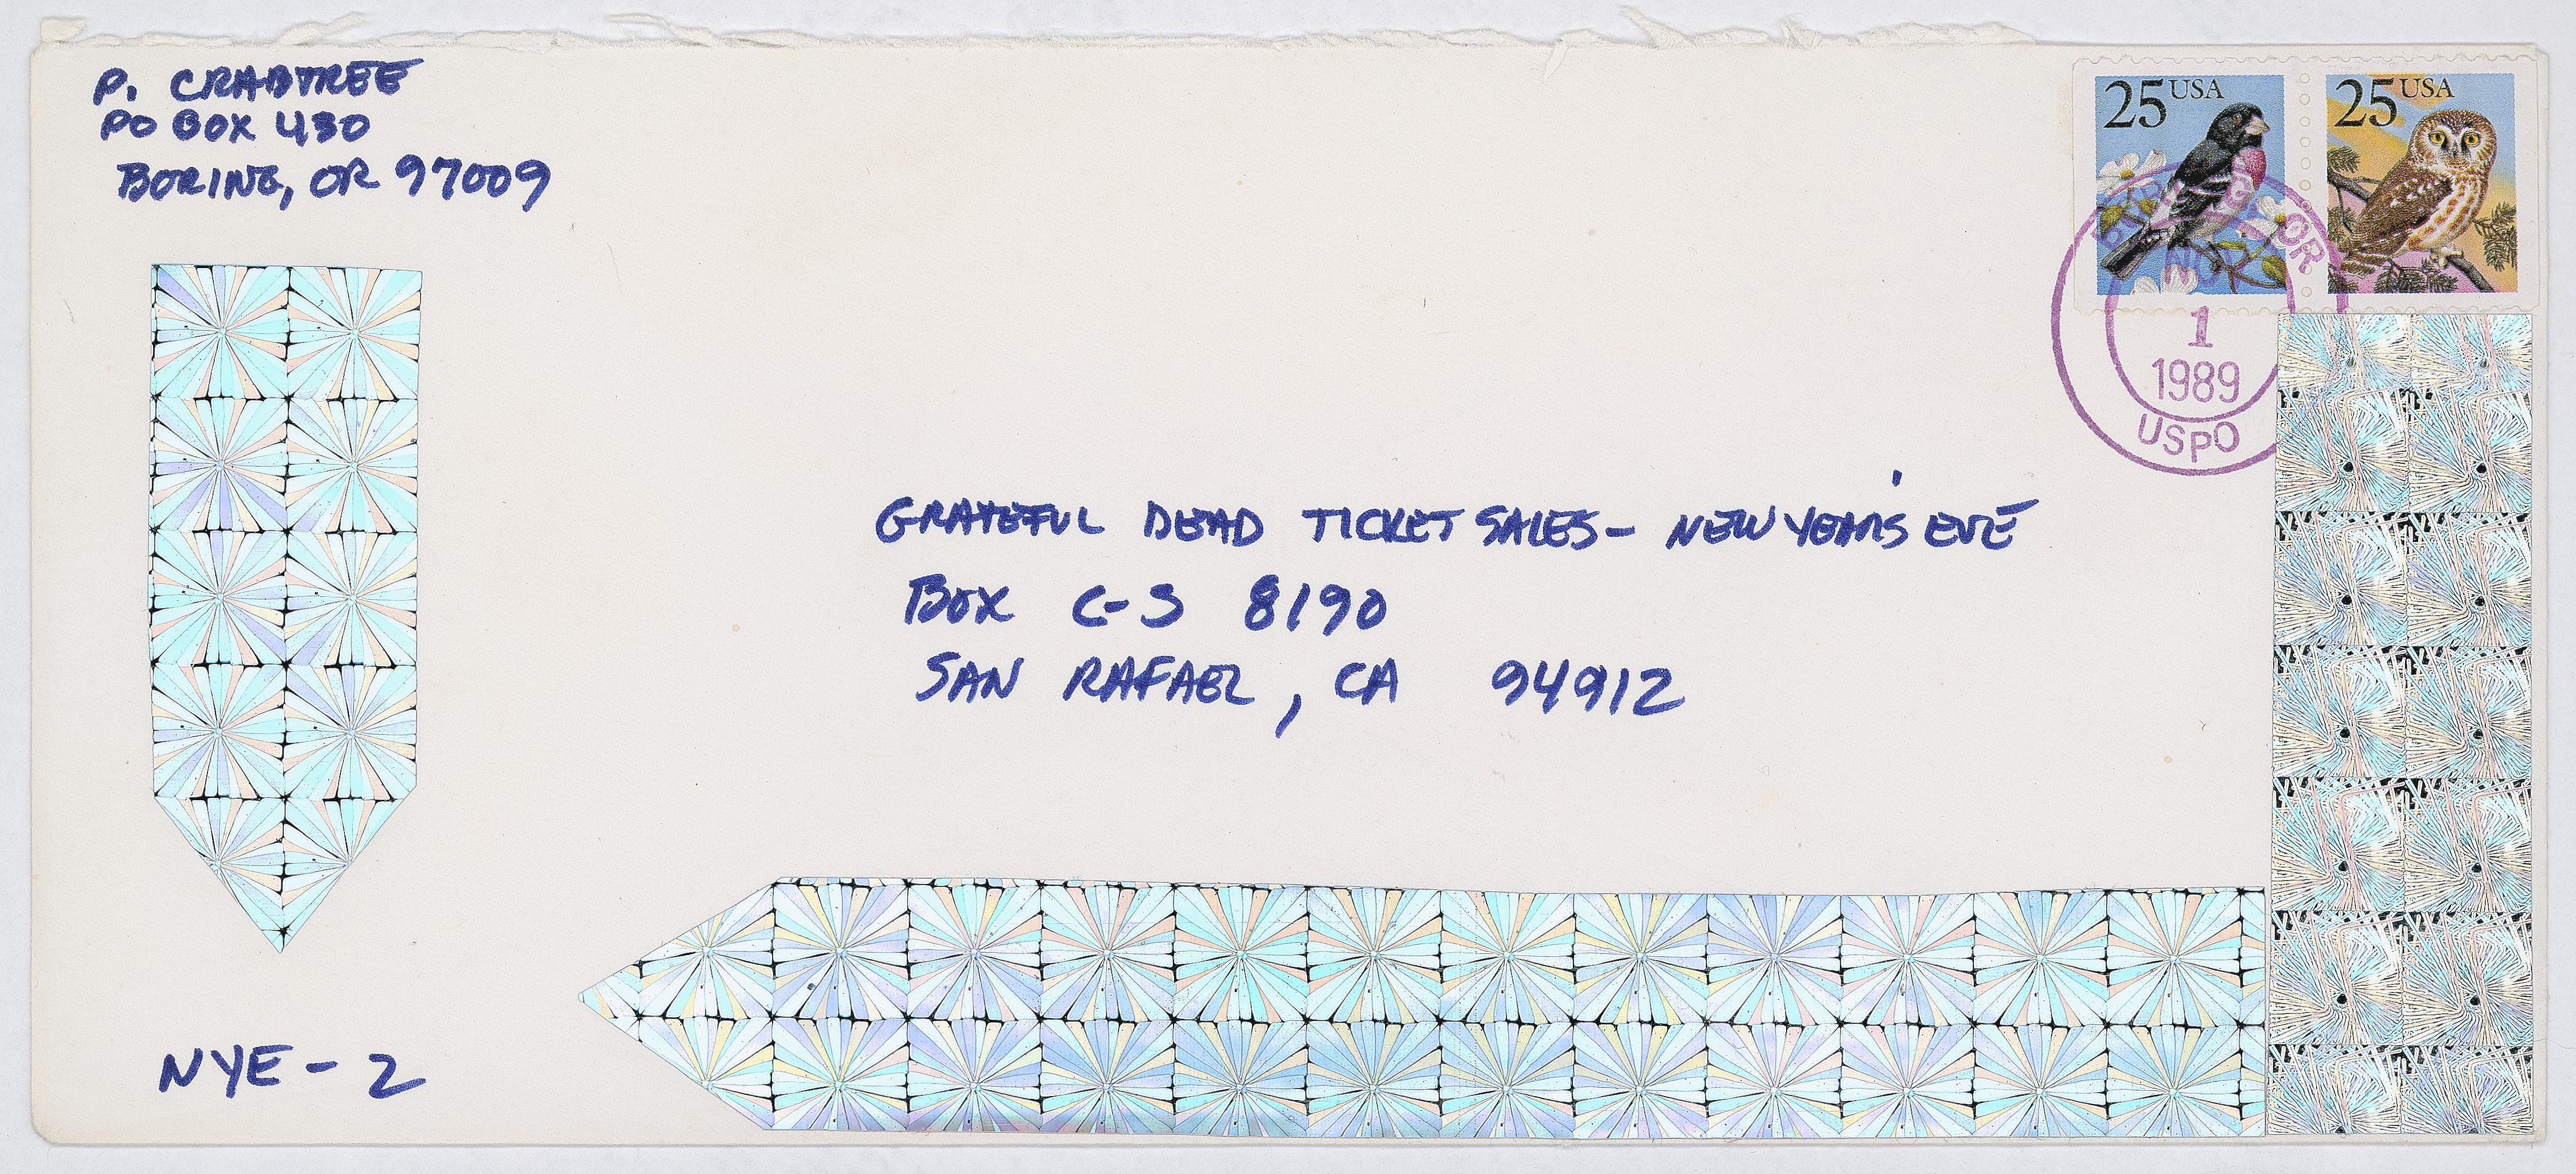 P. CRABTREE
PO BOX 430
BORING, OR 97009
25 USA
25 USA
BORING, OR
NOV
1
1989
USPO
GRATEFUL DEAD TICKET SALES - NEW YEAR'S EVE
BOX C-S 8190
SAN RAFAEL, CA 94912
NYE - 2